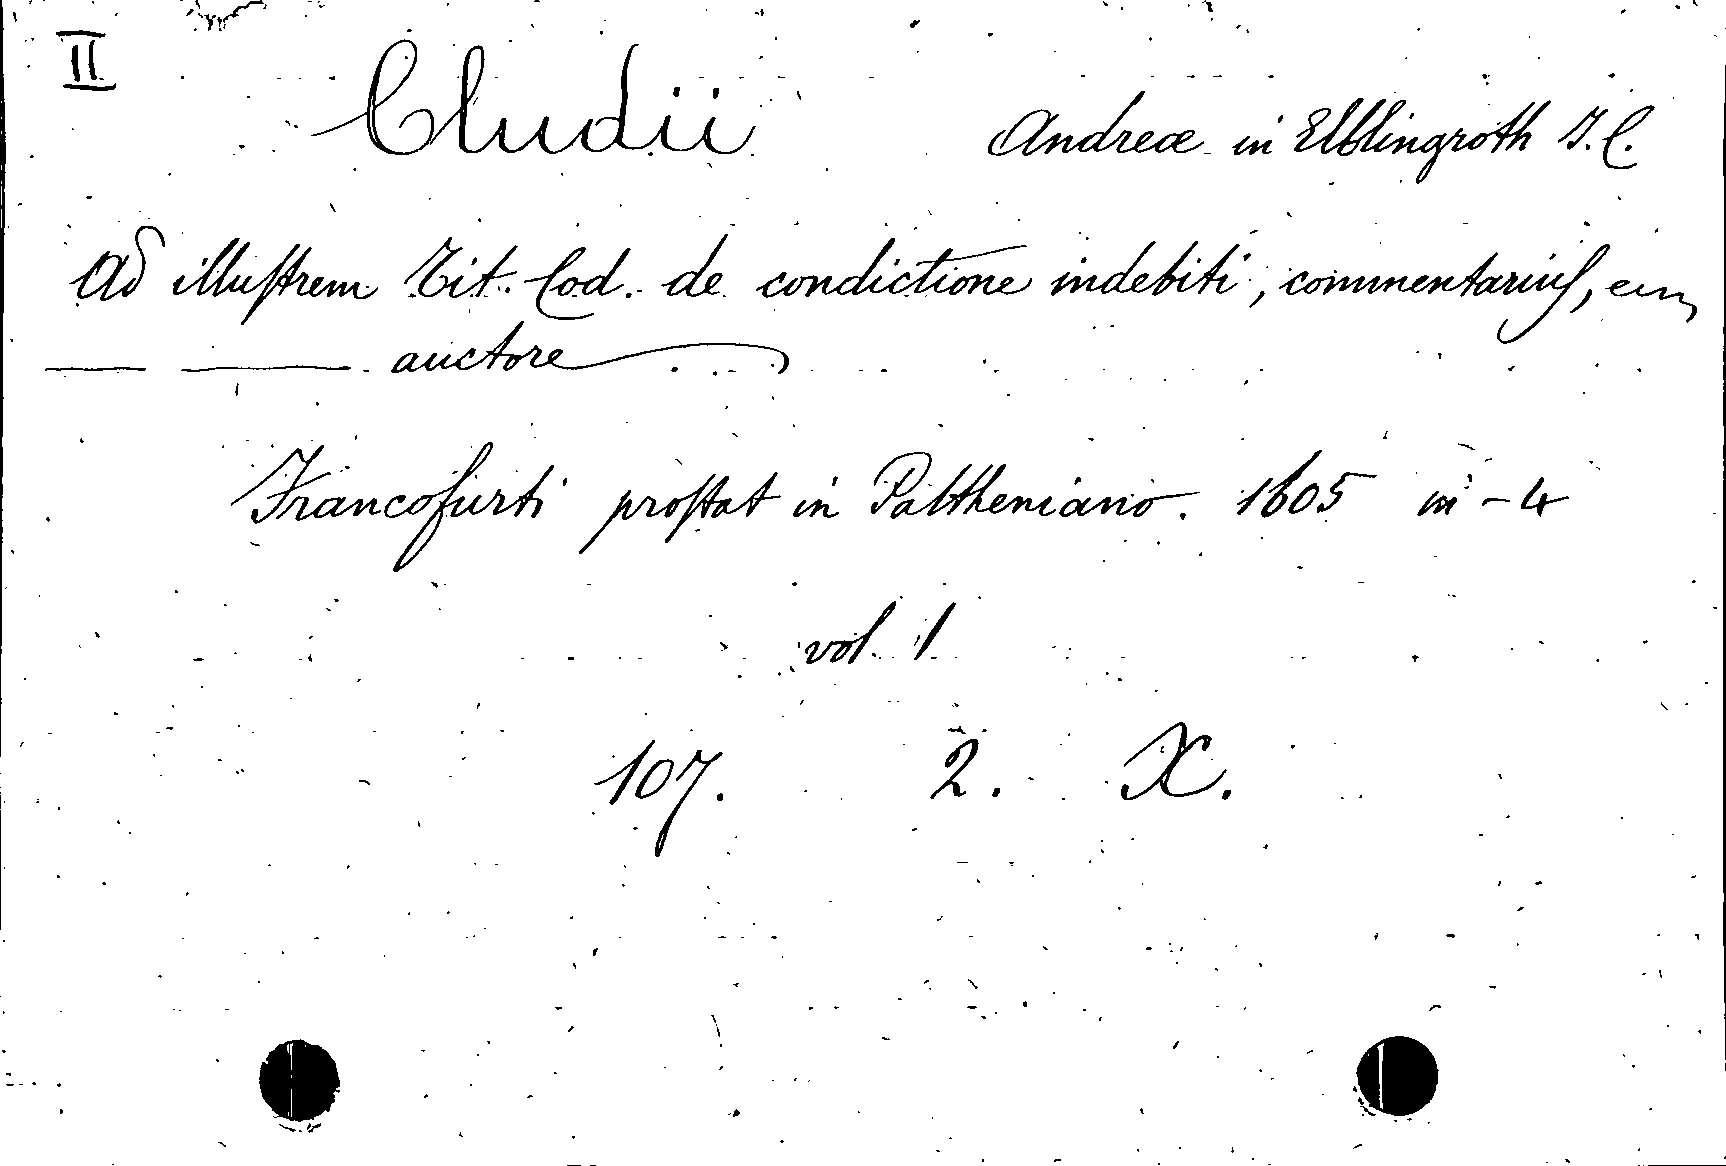 II
Cludii Andreæ in Elblingroth J. C.
Ad illuſtrem Tit. Cod. de condictione indebiti, commentarius,
auctore
Francofurti proſtat in Paltheniano. 1605 in-4
vol 1
107. 2. X.